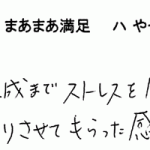 まあまあ満足 ハ や
成までストレスを
りさせてもらった感